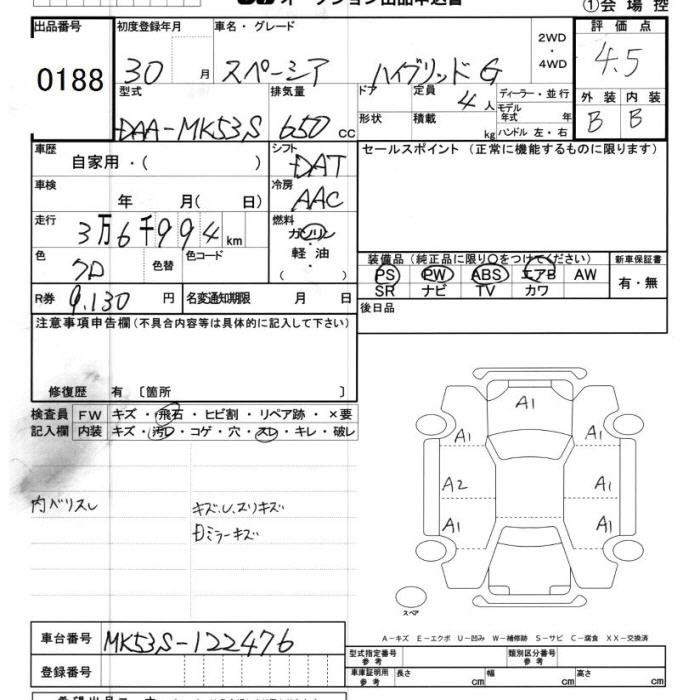 オークション出品申込書
①会場控
出品番号 初度登録年月 車名・グレード 評価点
0188 30 月 スペーシア ハイブリッドG 2WD・4WD 4.5
型式 排気量 ドア 定員 4人 ディーラー・並行 外装 内装
DAA-MK53S 650 cc 形状 積載 kg モデル年式 年 B B
ハンドル 左・右
車歴 シフト セールスポイント (正常に機能するものに限ります)
自家用・( ) DAT
車検 冷房
年 月( 日) AAC
走行 燃料
3万6千994 km ガソリン・軽油・( )
色 クロ 色替 色コード
装備品(純正品に限り○をつけてください) 新車保証書
PS PW ABS エアB AW 有・無
SR ナビ TV カワ
R券 9,130 円 名変通知期限 月 日
後日品
注意事項申告欄(不具合内容等は具体的に記入して下さい)
修復歴 有 〔箇所 〕
検査員 FW キズ・飛石・ヒビ割・リペア跡・×要
記入欄 内装 キズ・汚レ・コゲ・穴・スレ・キレ・破レ
A1
A1 A1
A2 A1
A1 A1
内ベリスレ キズ、U、スリキズ
スペア
A-キズ E-エクボ U-凹み W-補修跡 S-サビ C-腐食 XX-交換済
車台番号 MK53S-122476
登録番号
型式指定番号 参考 類別区分番号 参考
車庫証明用 参考 長さ cm 幅 cm 高さ cm